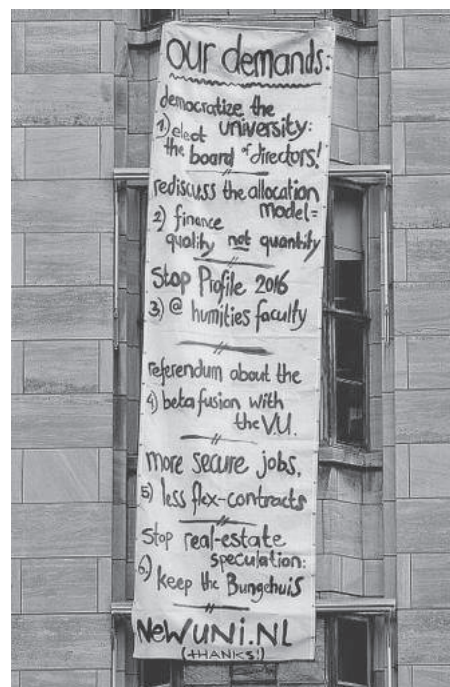 our demands:
democratize the
1) elect university:
the board of directors!
rediscuss the allocation
model=
2) finance
quality not quantity
Stop Profile 2016
3) @ humities faculty
referendum about the
4) beta fusion with
the VU.
more secure jobs,
5) less flex-contracts
Stop real-estate
speculation:
6) keep the Bungehuis
NeWUNi.NL
(THANKS!)